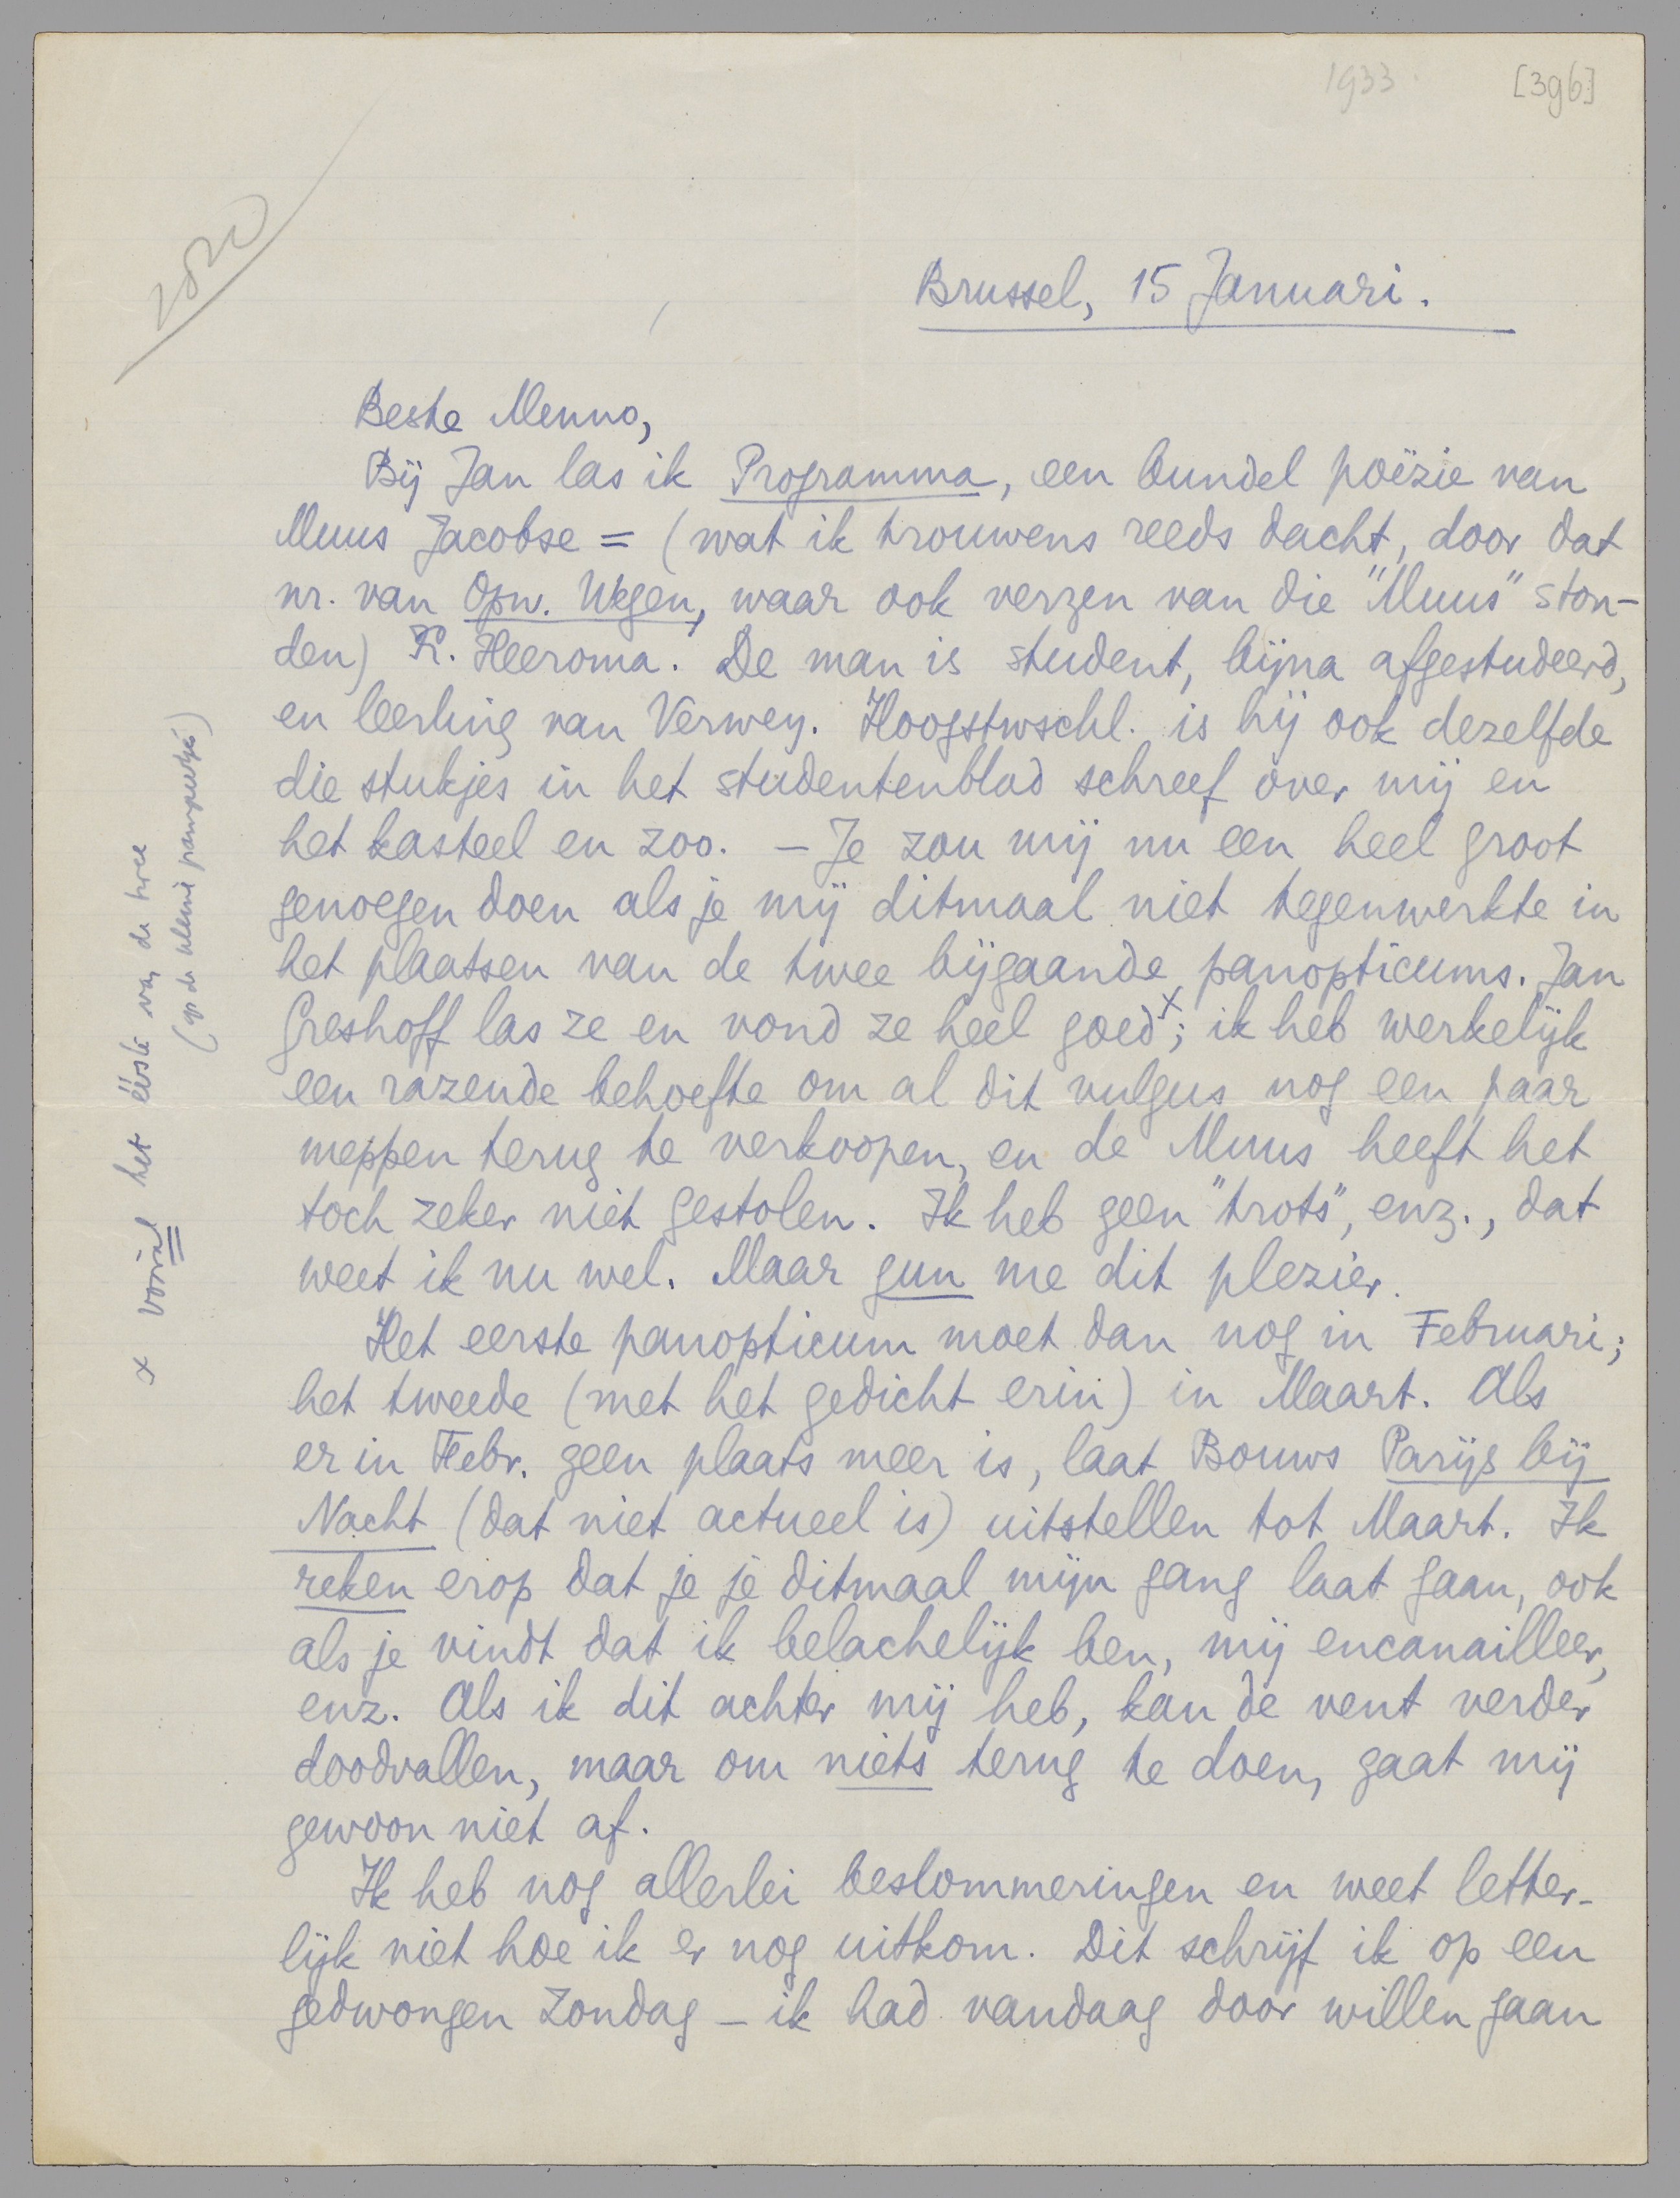 1933.
[396]
Brussel, 15 Januari.
Beste Menno,
Bij Jan las ik Programma, een bundel poëzie van
Muus Jacobse = (wat ik trouwens reeds dacht, door dat
nr. van Opw. Wegen, waar ook verzen van die "Muus" ston-
den) K. Heeroma. De man is student, bijna afgestudeerd,
en leerling van Verwey. Hoogstwschl. is hij ook dezelfde
die stukjes in het studentenblad schreef over mij en
het kasteel en zoo. – Je zou mij nu een heel groot
genoegen doen als je mij ditmaal niet tegenwerkte in
het plaatsen van de twee bijgaande panopticums. Jan
Greshoff las ze en vond ze heel goed x; ik heb werkelijk
een razende behoefte om al dit vulgus nog een paar
meppen terug te verkoopen, en de Muus heeft het
toch zeker niet gestolen. Ik heb geen "trots", enz., dat
weet ik nu wel. Maar gun me dit plezier.
Het eerste panopticum moet dan nog in Februari;
het tweede (met het gedicht erin) in Maart. Als
er in Febr. geen plaats meer is, laat Bouws Parijs bij
Nacht (dat niet actueel is) uitstellen tot Maart. Ik
reken erop dat je je ditmaal mijn gang laat gaan, ook
als je vindt dat ik belachelijk ben, mij encanailleer,
enz. Als ik dit achter mij heb, kan de vent verder
doodvallen, maar om niets terug te doen, gaat mij
gewoon niet af.
Ik heb nog allerlei beslommeringen en weet letter-
lijk niet hoe ik er nog uitkom. Dit schrijf ik op een
gedwongen Zondag – ik had vandaag door willen gaan
x vooral het éérste van de twee
(op de kleine